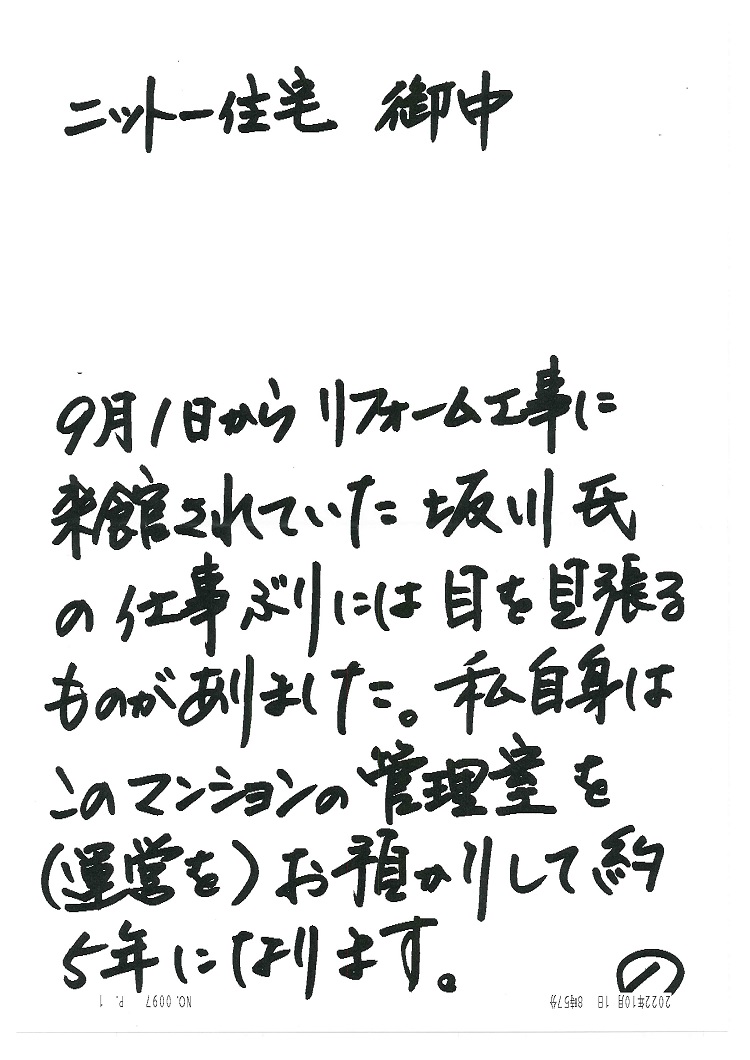 ニットー住宅 御中
9月1日からリフォーム工事に
来館されていた坂川氏
の仕事ぶりには目を見張る
ものがありました。私自身は
このマンションの管理室を
(運営を)お預かりして約
5年になります。
の
2022年10月 1日 8時57分 NO. 0097 P. 1